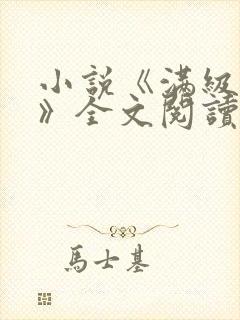 小説《滿級
》全文閱讀
馬士基